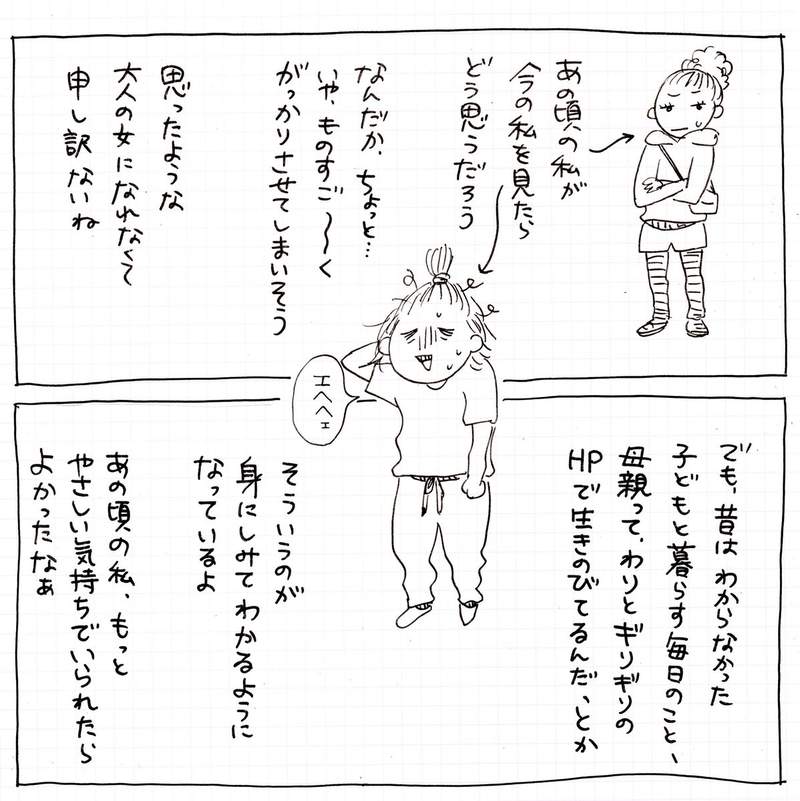 あの頃の私が
今の私を見たら
どう思うだろう
なんだか、ちょっと…
いや、ものすご〜〜く
がっかりさせてしまいそう
思ったような
大人の女になれなくて
申し訳ないね
エヘヘェ
でも、昔はわからなかった
子どもと暮らす毎日のこと、
母親って、わりとギリギリの
HPで生きのびてるんだ、とか
そういうのが
身にしみてわかるように
なっているよ
あの頃の私、もっと
やさしい気持ちでいられたら
よかったなぁ